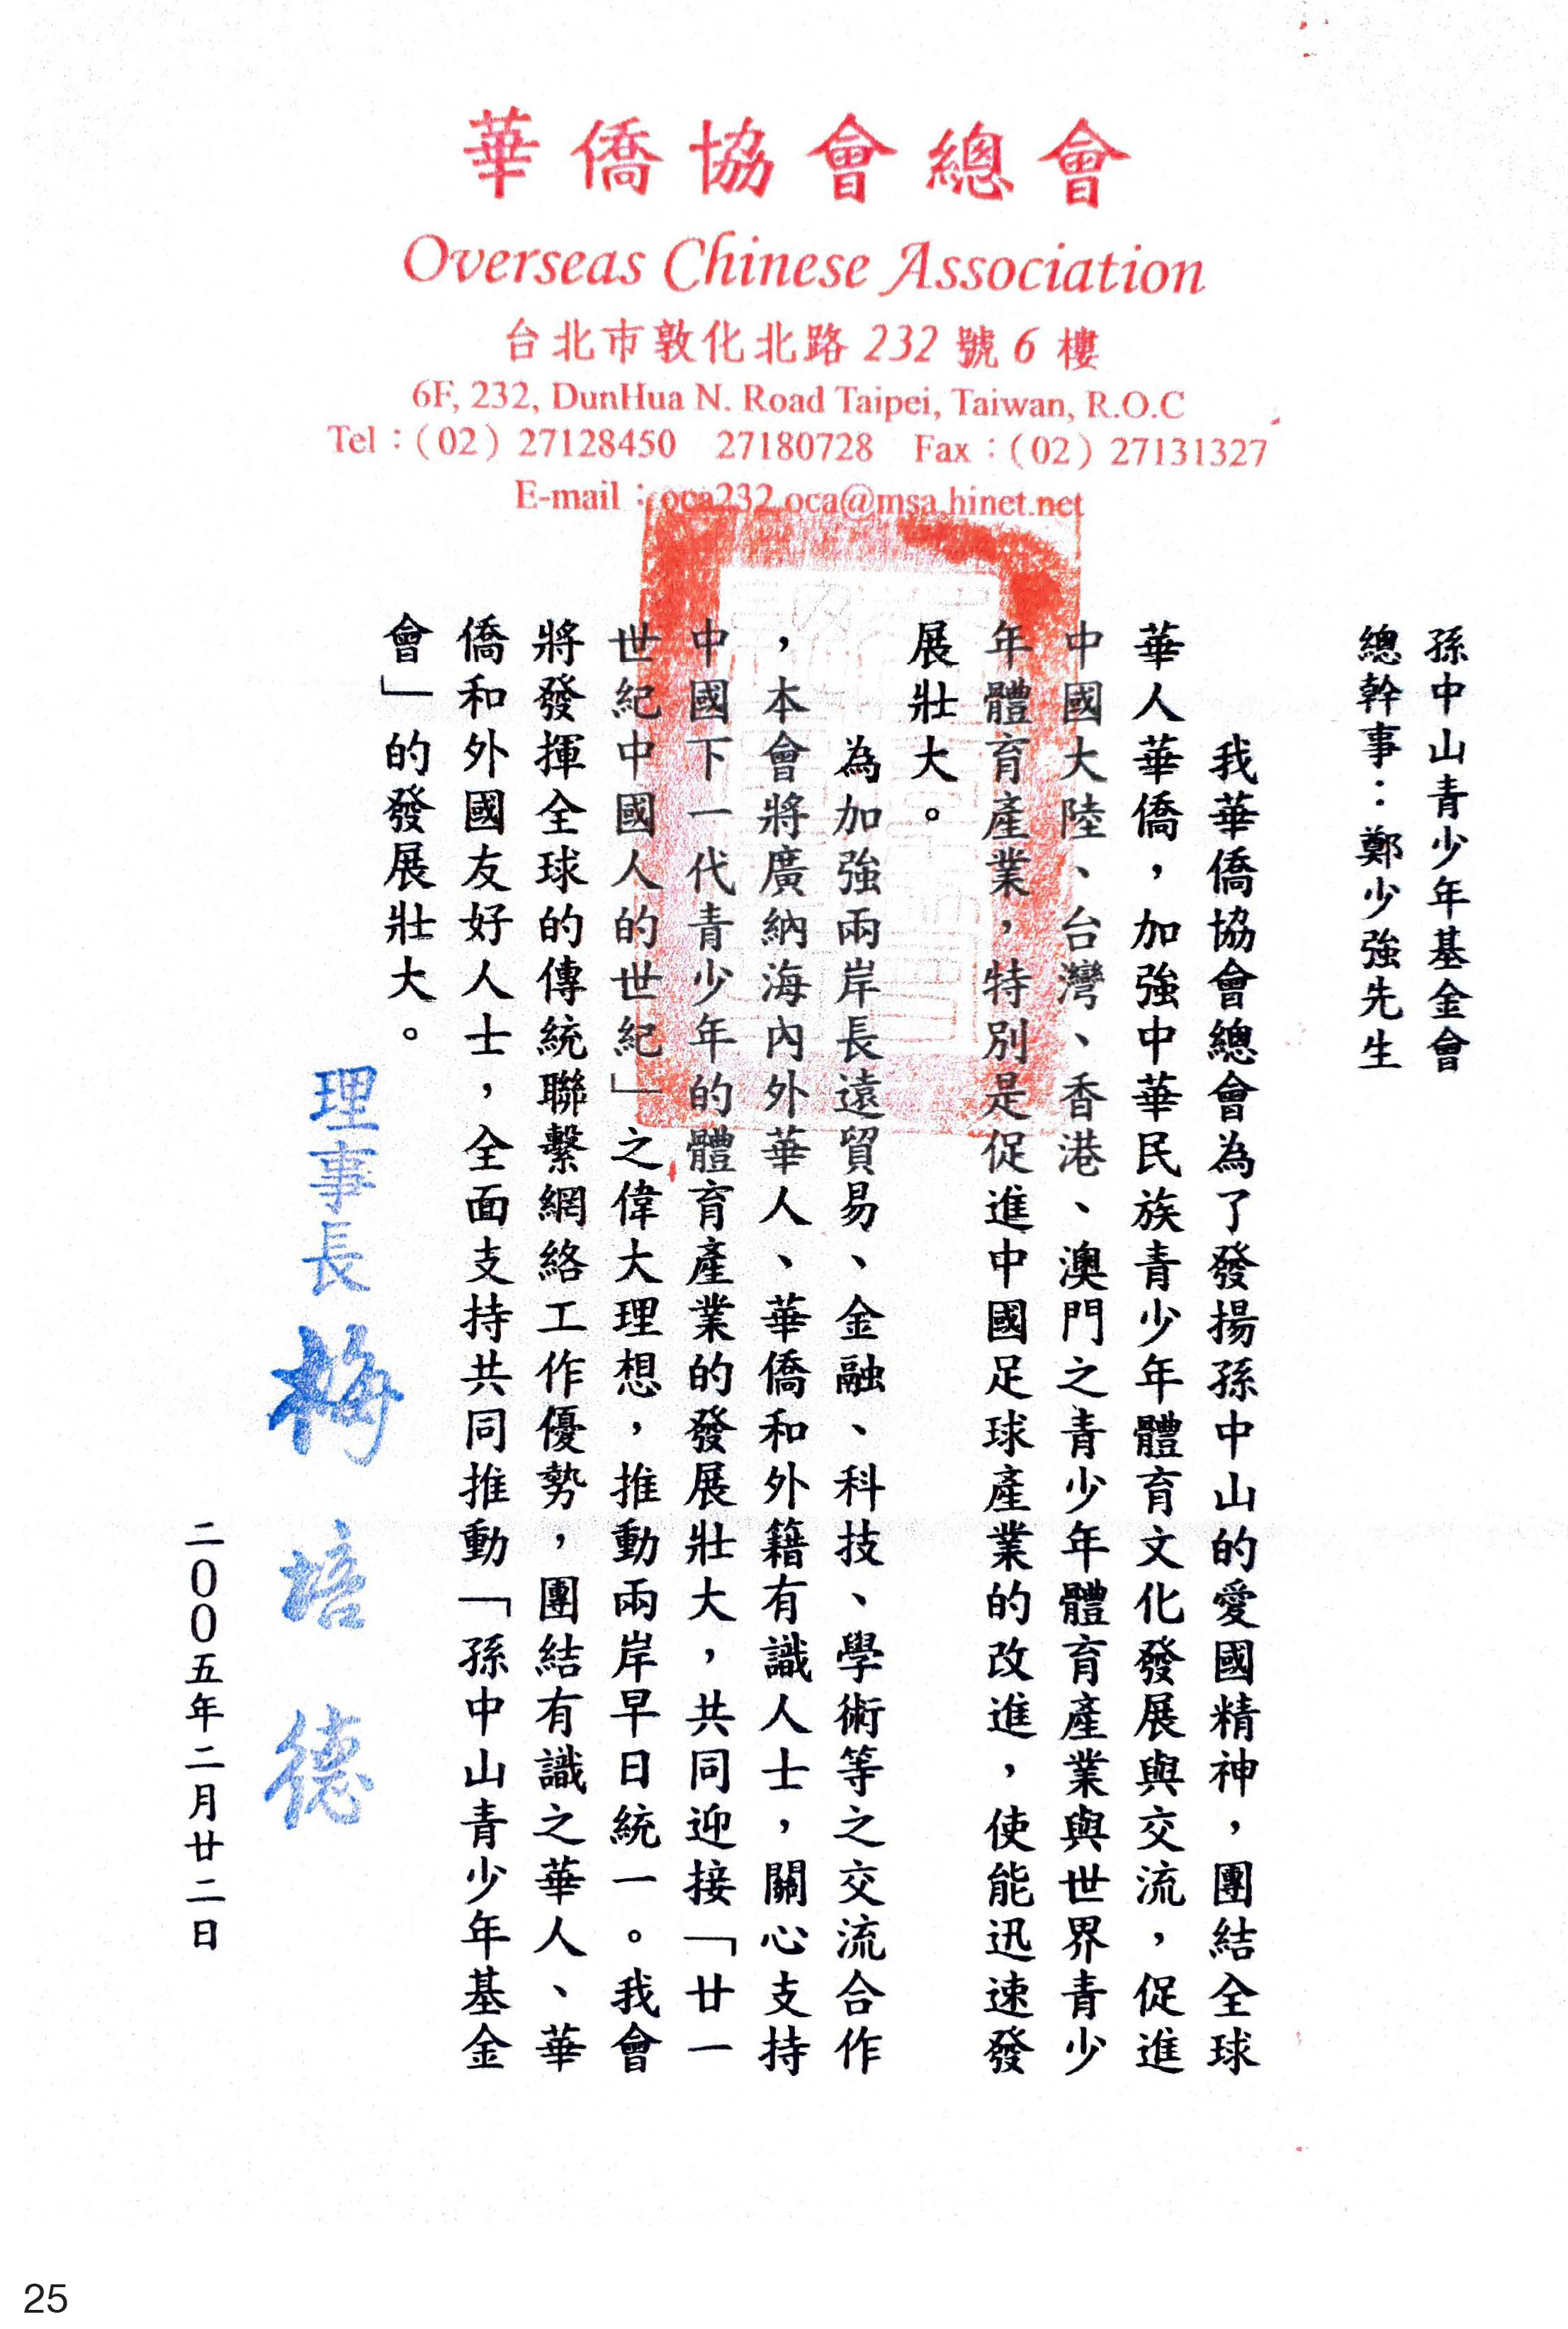 華僑協會總會
Overseas Chinese Association
台北市敦化北路 232 號 6 樓
6F, 232, DunHua N. Road Taipei, Taiwan, R.O.C
Tel：(02) 27128450 27180728 Fax：(02) 27131327
E-mail：oca232.oca@msa.hinet.net
孫中山青少年基金會
總幹事：鄭少強先生
我華僑協會總會為了發揚孫中山的愛國精神，團結全球
華人華僑，加強中華民族青少年體育文化發展與交流，促進
中國大陸、台灣、香港、澳門之青少年體育產業與世界青少
年體育產業，特別是促進中國足球產業的改進，使能迅速發
展壯大。
為加強兩岸長遠貿易、金融、科技、學術等之交流合作
，本會將廣納海內外華人、華僑和外籍有識人士，關心支持
中國下一代青少年的體育產業的發展壯大，共同迎接「廿一
世紀中國人的世紀」之偉大理想，推動兩岸早日統一。我會
將發揮全球的傳統聯繫網絡工作優勢，團結有識之華人、華
僑和外國友好人士，全面支持共同推動「孫中山青少年基金
會」的發展壯大。
理事長 梅培德
二〇〇五年二月廿二日
25